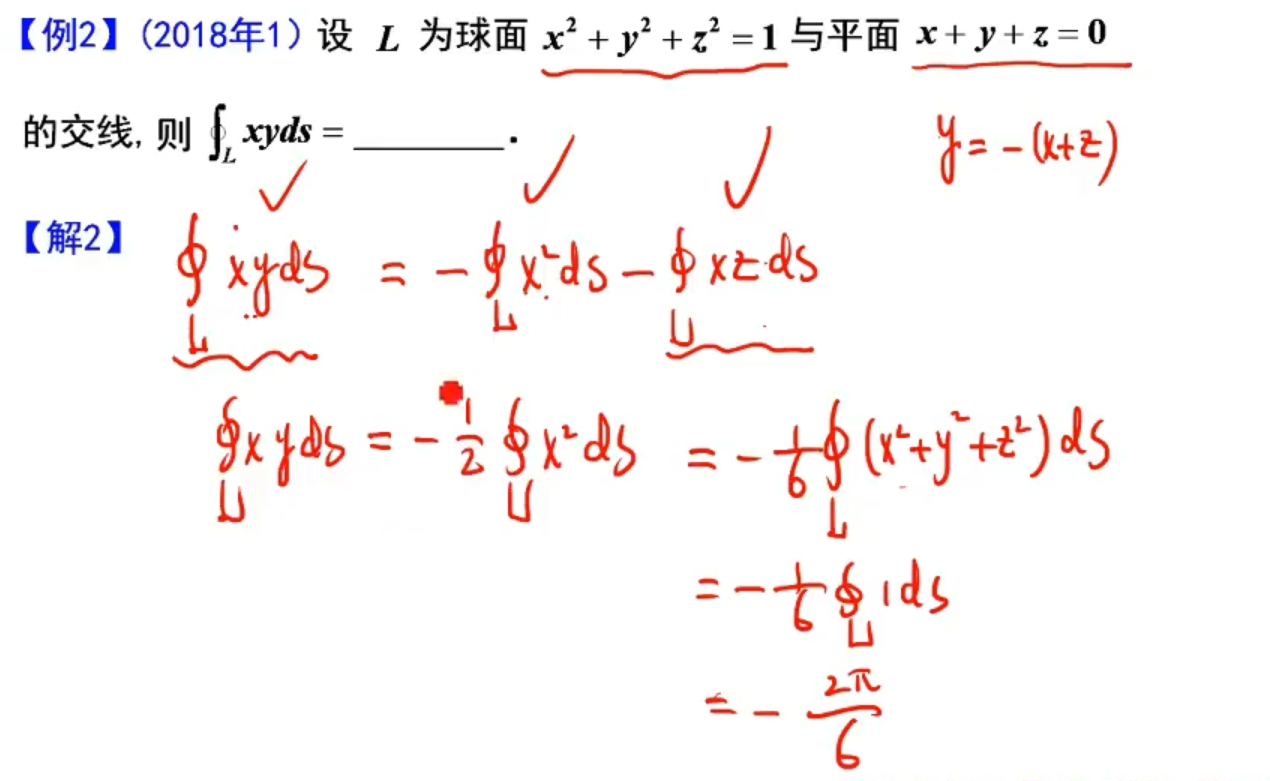 【例2】(2018年1) 设 L 为球面 x² + y² + z² = 1 与平面 x + y + z = 0
的交线, 则 ∮_L xyds = ________ .
y = -(x+z)
【解2】 ∮_L xyds = -∮_L x²ds - ∮_L xzds
∮_L xyds = -1/2 ∮_L x²ds = -1/6 ∮_L (x²+y²+z²)ds
= -1/6 ∮_L 1ds
= - 2π/6